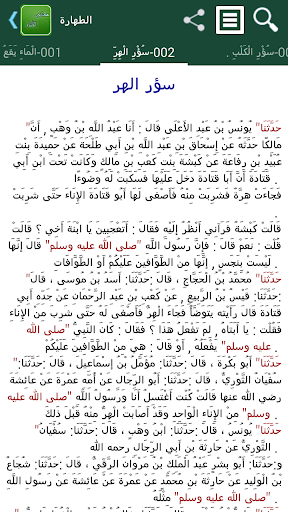 الطهارة
001-الْمَاءِ يَقَعُ
002-سُؤْرِ الْهِرِّ
00-سُؤْرِ الْكَلْبِ
سؤر الهر
حَدَّثَنَا" يُونُسُ بْنُ عَبْدِ الْأَعْلَى قَالَ : أَنَا عَبْدُ اللَّهِ بْنُ وَهْبٍ , أَنَّ"
مَالِكًا حَدَّثَهُ عَنْ إِسْحَاقَ بْنِ عَبْدِ اللَّهِ بْنِ أَبِي طَلْحَةَ عَنْ حُمَيْدَةَ بِنْتِ
عُبَيْدِ بْنِ رِفَاعَةَ عَنْ كَبْشَةَ بِنْتِ كَعْبِ بْنِ مَالِكٍ وَكَانَتْ تَحْتَ ابْنِ أَبِي
قَتَادَةَ , أَنَّ أَبَا قَتَادَةَ دَخَلَ عَلَيْهَا فَسَكَبَتْ لَهُ وَضُوءًا
فَجَاءَتْ هِرَّةٌ فَشَرِبَتْ مِنْهُ فَأَصْغَى لَهَا أَبُو قَتَادَةَ الْإِنَاءَ حَتَّى شَرِبَتْ
قَالَتْ كَبْشَةُ فَرَآنِي أَنْظُرُ إِلَيْهِ فَقَالَ : أَتَعْجَبِينَ يَا ابْنَةَ أَخِي ؟ قَالَتْ
قُلْتُ : نَعَمْ قَالَ : فَإِنَّ رَسُولَ اللَّهِ "صلى الله عليه وسلم" قَالَ إِنَّهَا
لَيْسَتْ بِنَجَسٍ , إِنَّهَا مِنَ الطَّوَّافِينَ عَلَيْكُمْ أَوْ الطَّوَّافَاتِ
حَدَّثَنَا" مُحَمَّدُ بْنُ الْحَجَّاجِ , قَالَ :حَدَّثَنَا: أَسَدُ بْنُ مُوسَى , قَالَ"
حَدَّثَنَا: قَيْسُ بْنُ الرَّبِيعِ , عَنْ كَعْبِ بْنِ عَبْدِ الرَّحْمَانِ عَنْ جَدِّهِ أَبِي
قَتَادَةَ قَالَ رَأَيْتُهُ يَتَوَضَّأُ فَجَاءَ الْهِرُّ فَأَصْغَى لَهُ حَتَّى شَرِبَ مِنَ الْإِنَاءِ
فَقُلْتُ : يَا أَبَتَاهُ , لِمَ تَفْعَلُ هَذَا ؟ فَقَالَ : كَانَ النَّبِيُّ "صلى الله
عليه وسلم" يَفْعَلُهُ , أَوْ قَالَ : هِيَ مِنَ الطَّوَّافِينَ عَلَيْكُمْ
حَدَّثَنَا" أَبُو بَكْرَةَ , قَالَ :حَدَّثَنَا: مُؤَمَّلُ بْنُ إِسْمَاعِيلَ , قَالَ :حَدَّثَنَا"
سُفْيَانُ الثَّوْرِيُّ , قَالَ :حَدَّثَنَا: أَبُو الرِّجَالِ عَنْ أُمِّهِ عَمْرَةَ عَنْ عَائِشَةَ
رضي الله عنها قَالَتْ كُنْتُ أَغْتَسِلُ أَنَا وَرَسُولُ اللَّهِ "صلى الله
عليه وسلم" مِنَ الْإِنَاءِ الْوَاحِدِ وَقَدْ أَصَابَتِ الْهِرُّ مِنْهُ قَبْلَ ذَلِكَ
حَدَّثَنَا" يُونُسُ , قَالَ :حَدَّثَنَا: ابْنُ وَهْبٍ , قَالَ :حَدَّثَنَا: سُفْيَانُ"
الثَّوْرِيُّ عَنْ حَارِثَةَ بْنِ أَبِي الرِّجَالِ رحمه الله
حَدَّثَنَا: أَبُو بِشْرٍ عَبْدُ الْمَلِكِ بْنُ مَرْوَانَ الرَّقِّيُّ , قَالَ :حَدَّثَنَا: شُجَاعُ
بْنُ الْوَلِيدِ عَنْ حَارِثَةَ بْنِ مُحَمَّدٍ عَنْ عَمْرَةَ عَنْ عَائِشَةَ عَنْ رَسُولِ
اللَّهِ "صلى الله عليه وسلم" مِثْلَهُ